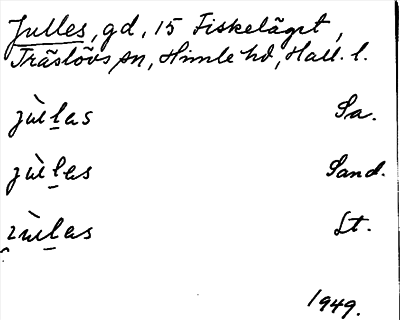 Julles, gd, 15 Fiskeläget,
Träslövs sn, Himle hd, Hall. l.
jùlas Sa.
jùlas Sand.
jùlas St.
1949.